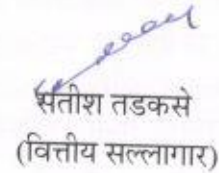 सतीश तडकसे
(वित्तीय सल्लागार)